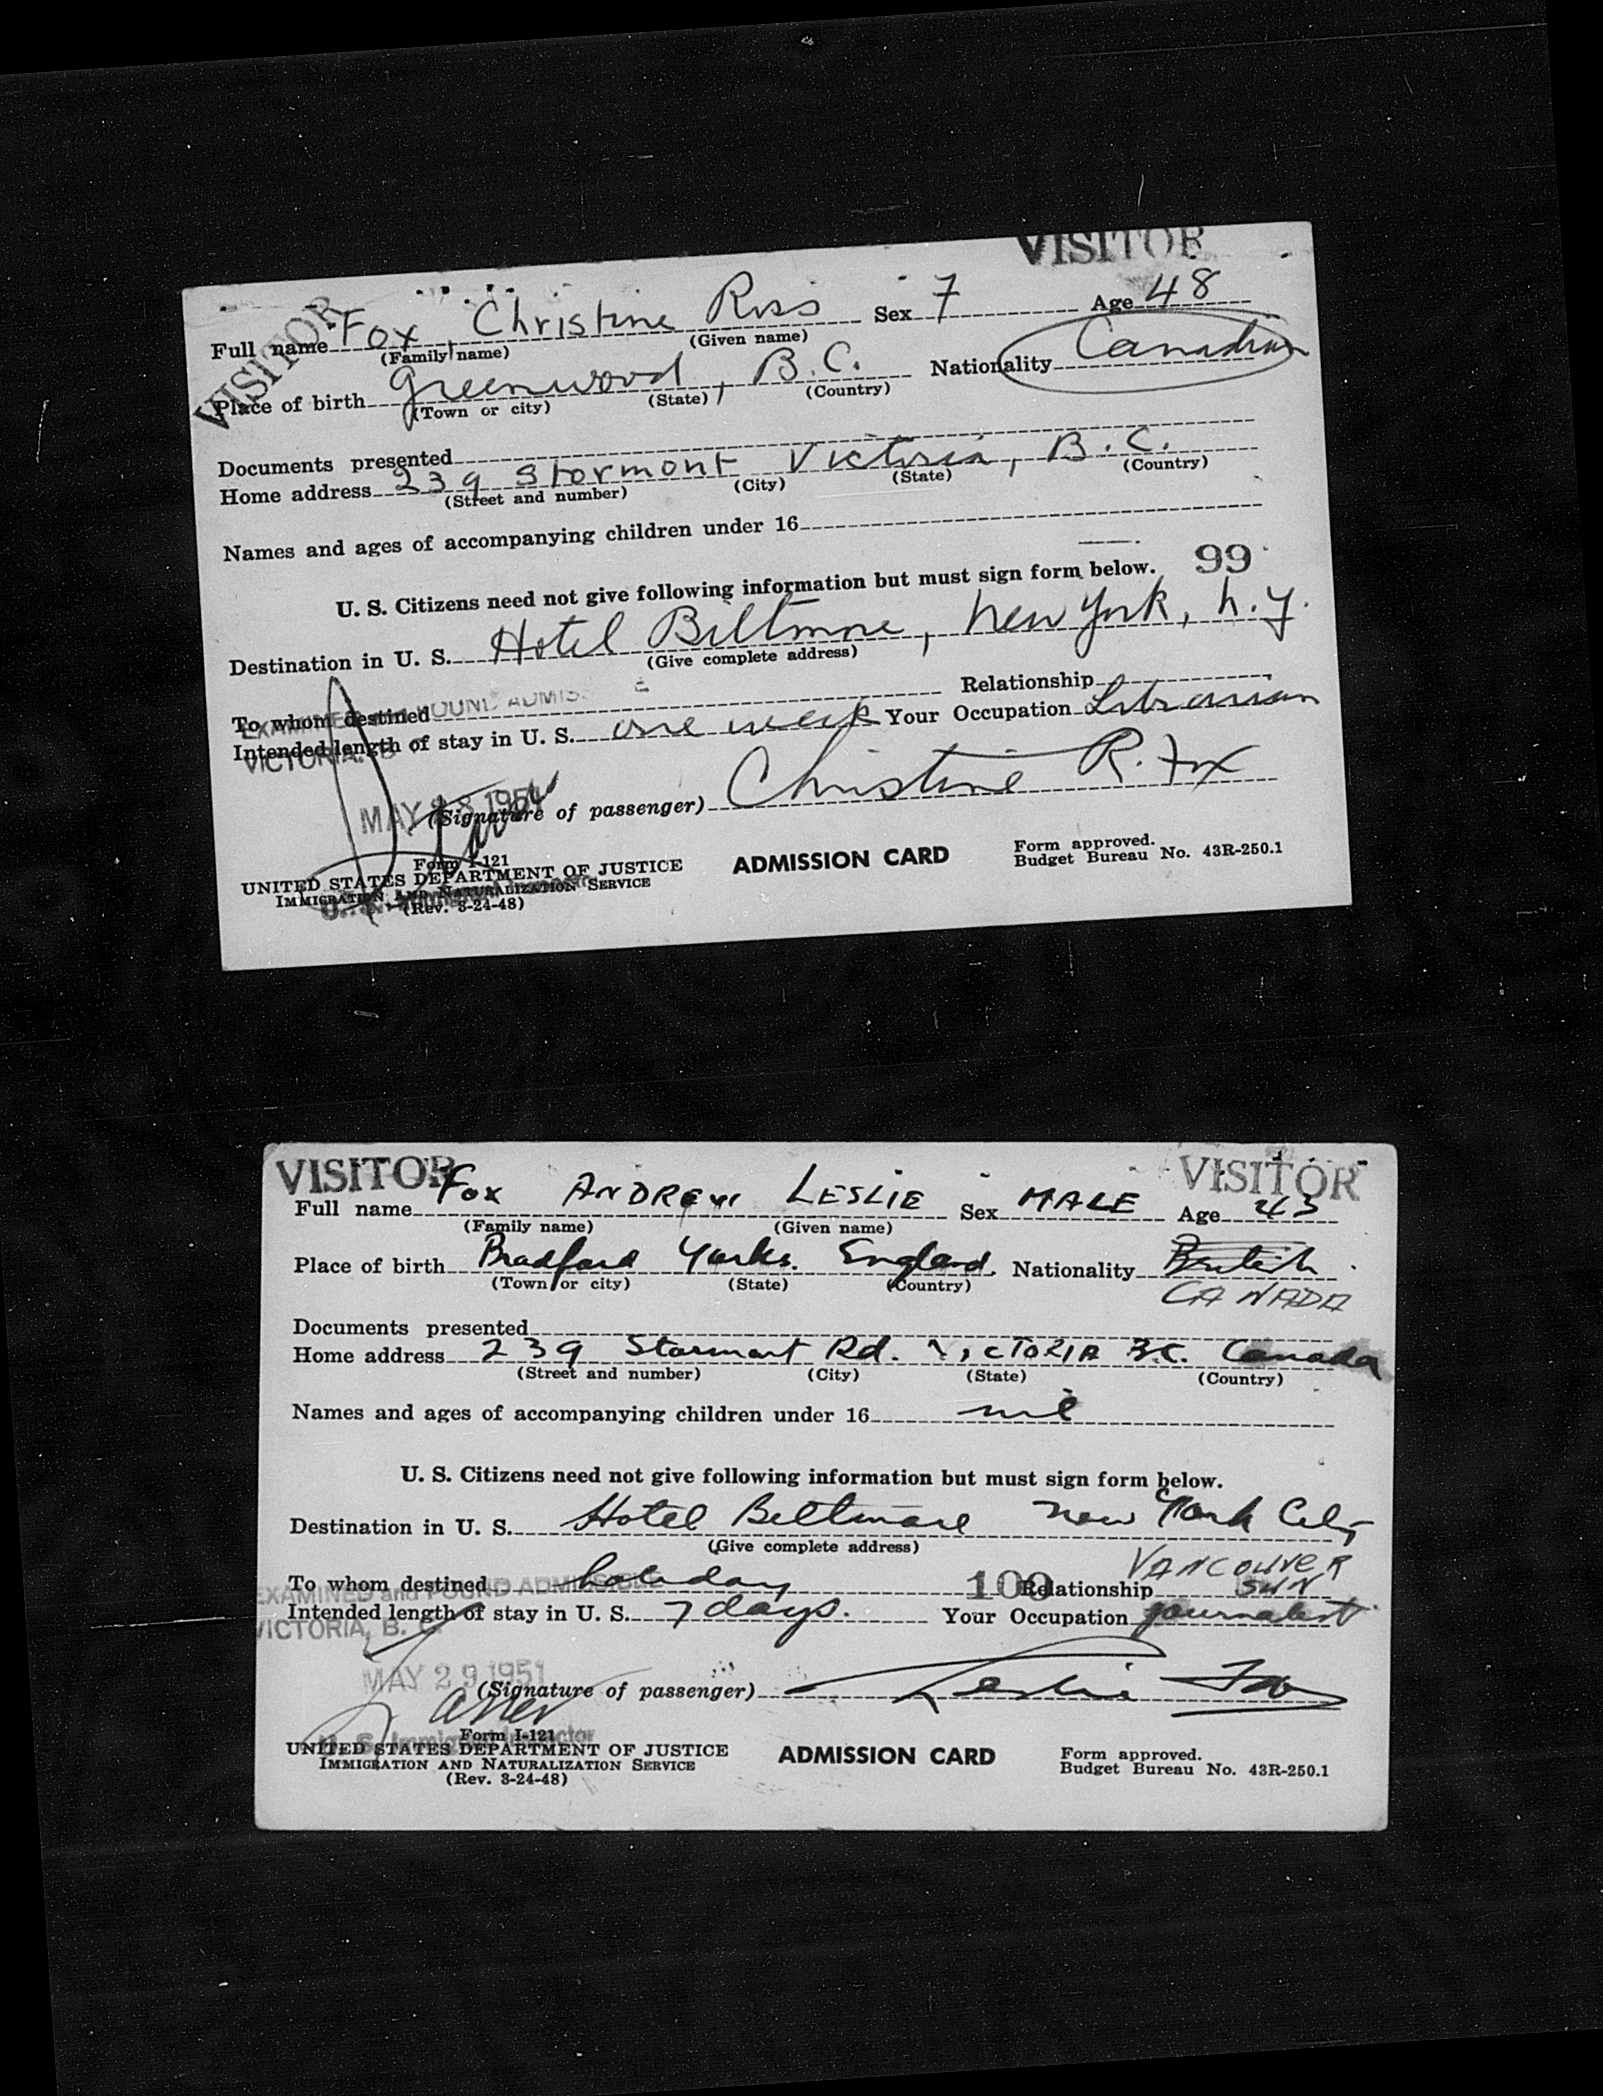 VISITOR
VISITOR
Full name Fox, Christine Ross Sex F Age 48
(Family name) (Given name)
Place of birth Greenwood, B.C. Nationality Canadian
(Town or city) (State) (Country)
Documents presented
Home address 239 Stormont Victoria, B.C.
(Street and number) (City) (State) (Country)
Names and ages of accompanying children under 16
U. S. Citizens need not give following information but must sign form below. 99
Destination in U. S. Hotel Biltmore, New York, N.Y.
(Give complete address)
To whom destined Relationship
Intended length of stay in U. S. one week Your Occupation Librarian
EXAMINED and FOUND ADMIS
VICTORIA, B
MAY 28 1951
(Signature of passenger) Christine R. Fox
Form I-121
UNITED STATES DEPARTMENT OF JUSTICE
IMMIGRATION AND NATURALIZATION SERVICE
(Rev. 3-24-48)
ADMISSION CARD
Form approved.
Budget Bureau No. 43R-250.1
VISITOR VISITOR
Full name Fox ANDREW LESLIE Sex MALE Age 43
(Family name) (Given name)
Place of birth Bradford Yorks. England. Nationality British
(Town or city) (State) (Country) CANADA
Documents presented
Home address 239 Stormont Rd. VICTORIA B.C. Canada
(Street and number) (City) (State) (Country)
Names and ages of accompanying children under 16 nil
U. S. Citizens need not give following information but must sign form below.
Destination in U. S. Hotel Biltmore New York City
(Give complete address)
To whom destined holiday 100 Relationship VANCOUVER SUN
EXAMINED and FOUND ADMISSIBLE
Intended length of stay in U. S. 7 days. Your Occupation journalist
VICTORIA, B. C.
MAY 29 1951
(Signature of passenger) Leslie Fox
Form I-121
U. S. Immigrant Inspector
UNITED STATES DEPARTMENT OF JUSTICE
IMMIGRATION AND NATURALIZATION SERVICE
(Rev. 3-24-48)
ADMISSION CARD
Form approved.
Budget Bureau No. 43R-250.1